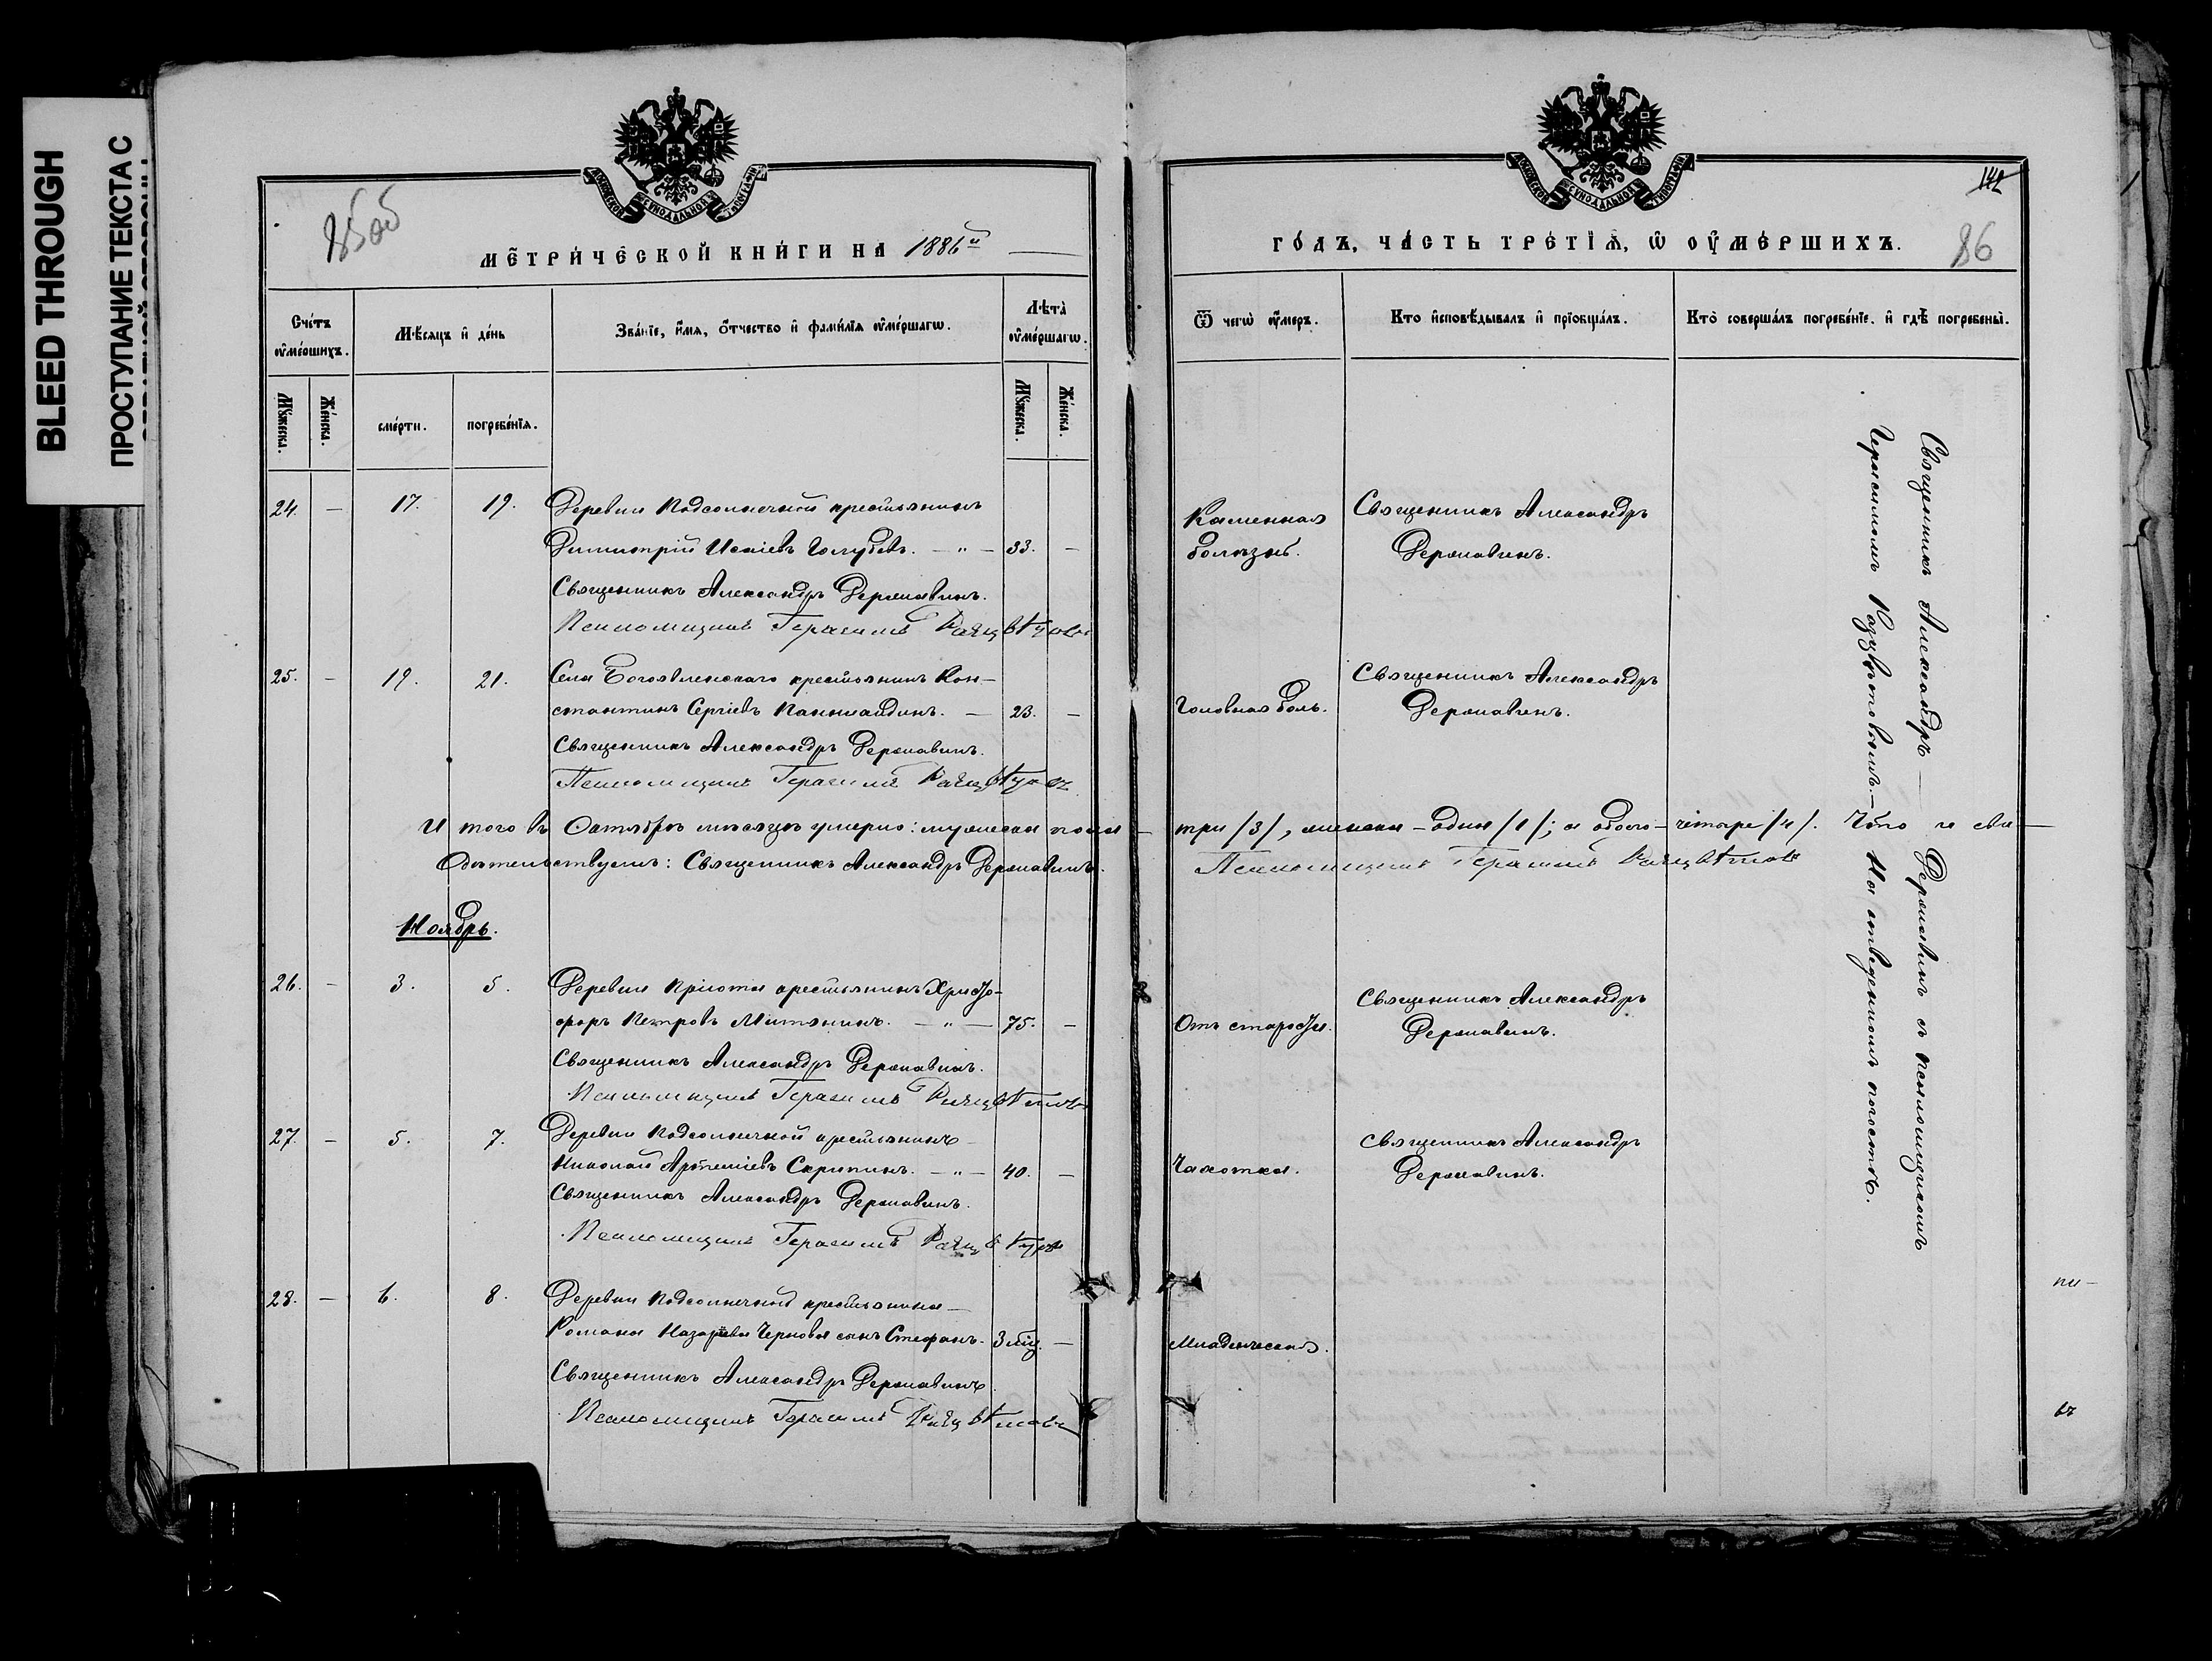 BLEED THROUGH
ПРОСТУПАНИЕ ТЕКСТА С
85об
МЕТРИЧЕСКОЙ КНИГИ НА 1886й
Счетъ умершихъ.
Мѣсяцъ и день
Званіе, имя, отчество и фамилія умершаго.
Лѣта умершаго.
Мужеска.
Женска.
смерти.
погребенія.
Мужеска.
Женска.
24. — 17. 19. Деревни Подсолнечной крестьянинъ
Димитрій Исаіевъ Голубевъ. — „ — 33. —
Священникъ Александръ Державинъ.
Псаломщикъ Герасимъ Разцвѣтовъ
25. — 19. 21. Села Богоявленскаго крестьянинъ Кон-
стантинъ Сергіевъ — 23. —
Священникъ Александръ Державинъ.
Псаломщикъ Герасимъ Разцвѣтовъ
И того въ Октябрѣ мѣсяцѣ умерло: мужеска пола —
дѣтельствуемъ: Священникъ Александръ Державинъ.
Ноябрь.
26. — 3. 5. Деревни Пріюта крестьянинъ Христо-
форъ Петровъ Митянинъ. — „ — 75. —
Священникъ Александръ Державинъ.
Псаломщикъ Герасимъ Разцвѣтовъ
27. — 5. 7. Деревни Подсолнечной крестьянинъ
Николай Артеміевъ Скрипинъ. — „ — 40. —
Священникъ Александръ Державинъ.
Псаломщикъ Герасимъ Разцвѣтовъ
28. — 6. 8. Деревни Подсолнечной крестьянина
Романа Назарьева Чернова сынъ Стефанъ. 3 мѣц. —
Священникъ Александръ Державинъ.
Псаломщикъ Герасимъ Разцвѣтовъ
142
ГОДЪ, ЧАСТЬ ТРЕТІЯ, Ѡ УМЕРШИХЪ.
86
Ѿ чегѡ умеръ.
Кто исповѣдывалъ и пріобщалъ.
Кто совершалъ погребеніе, и гдѣ погребены.
Каменная Священникъ Александръ
болѣзнь. Державинъ.
Священникъ Александръ
Головная боль. Державинъ.
три /3/, женска – одна /1/; а обоего – четыре /4/. Что и сви —
Псаломщикъ Герасимъ Разцвѣтовъ
Священникъ Александръ
Отъ старости. Державинъ.
Священникъ Александръ
Чахотка. Державинъ.
Младенческая.
Священникъ Александръ — Державинъ съ псаломщикомъ
Герасимомъ Разцвѣтовымъ. — На отведенномъ погостѣ.